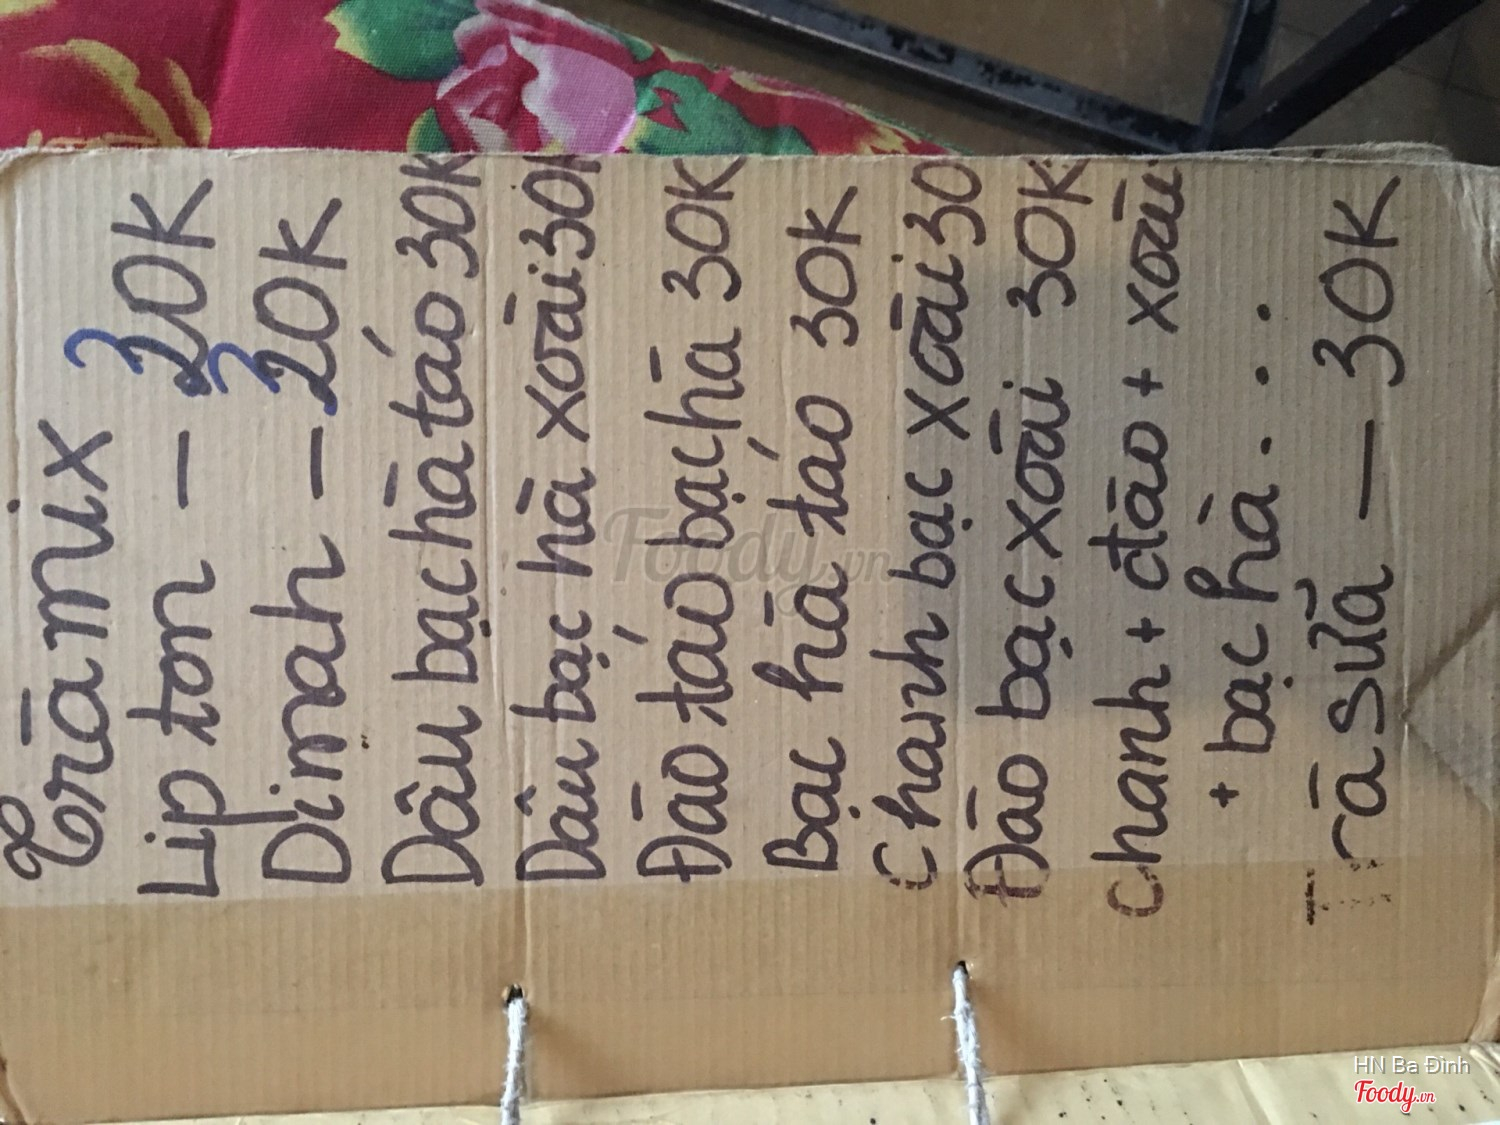 Trà mix
Lip ton - 30K
Dimah - 30K
Dâu bạc hà táo 30K
Dâu bạc hà xoài 30K
Đào táo bạc hà 30K
Bạc hà táo 30K
Chanh bạc xoài 30
Đào bạc xoài 30K
Chanh + đào + xoài
+ bạc hà....
Trà sữa - 30K
Foody.vn
HN Ba Đình
Foody.vn